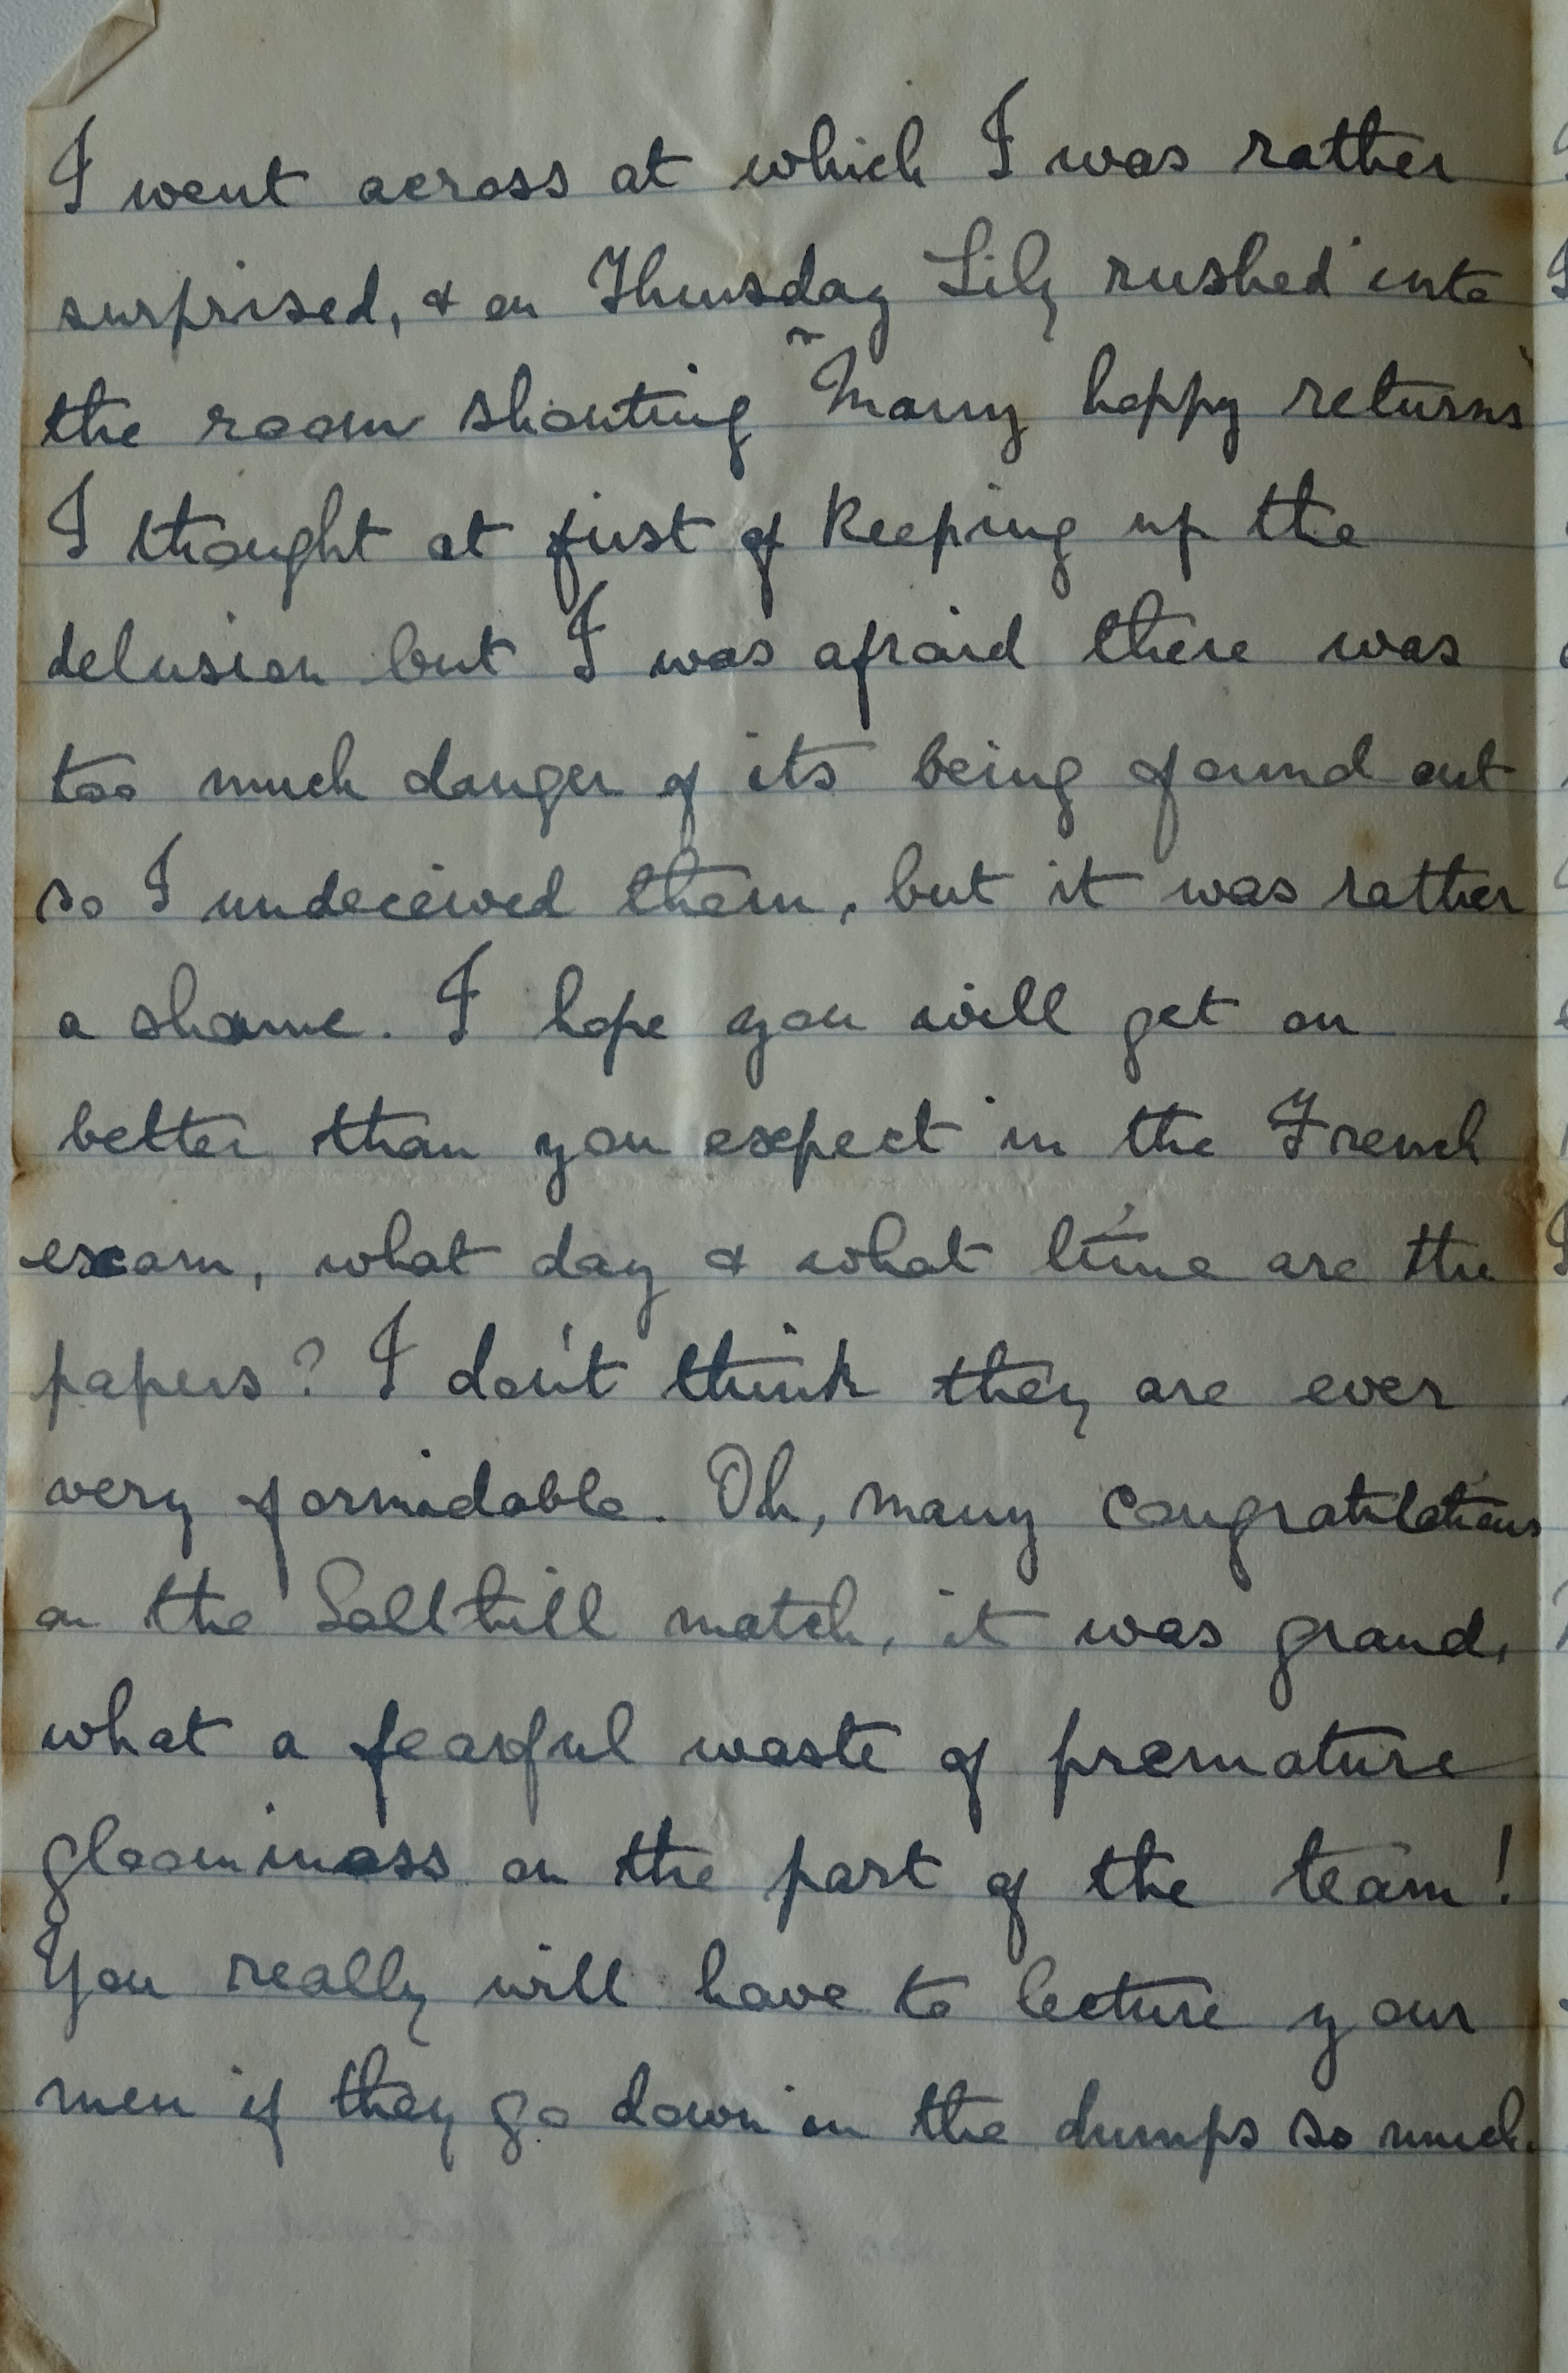 I went across at which I was rather
surprised, & on Thursday Lily rushed into
the room shouting "Many happy returns"
I thought at first of keeping up the
delusion but I was afraid there was
too much danger of its being found out
so I undeceived them, but it was rather
a shame. I hope you will get on
better than you expect in the French
exam, what day & what time are the
papers? I don't think they are ever
very formidable. Oh, many congratulations
on the Salthill match, it was grand,
what a fearful waste of premature
gloominess on the part of the team!
You really will have to lecture your
men if they go down in the dumps so much.